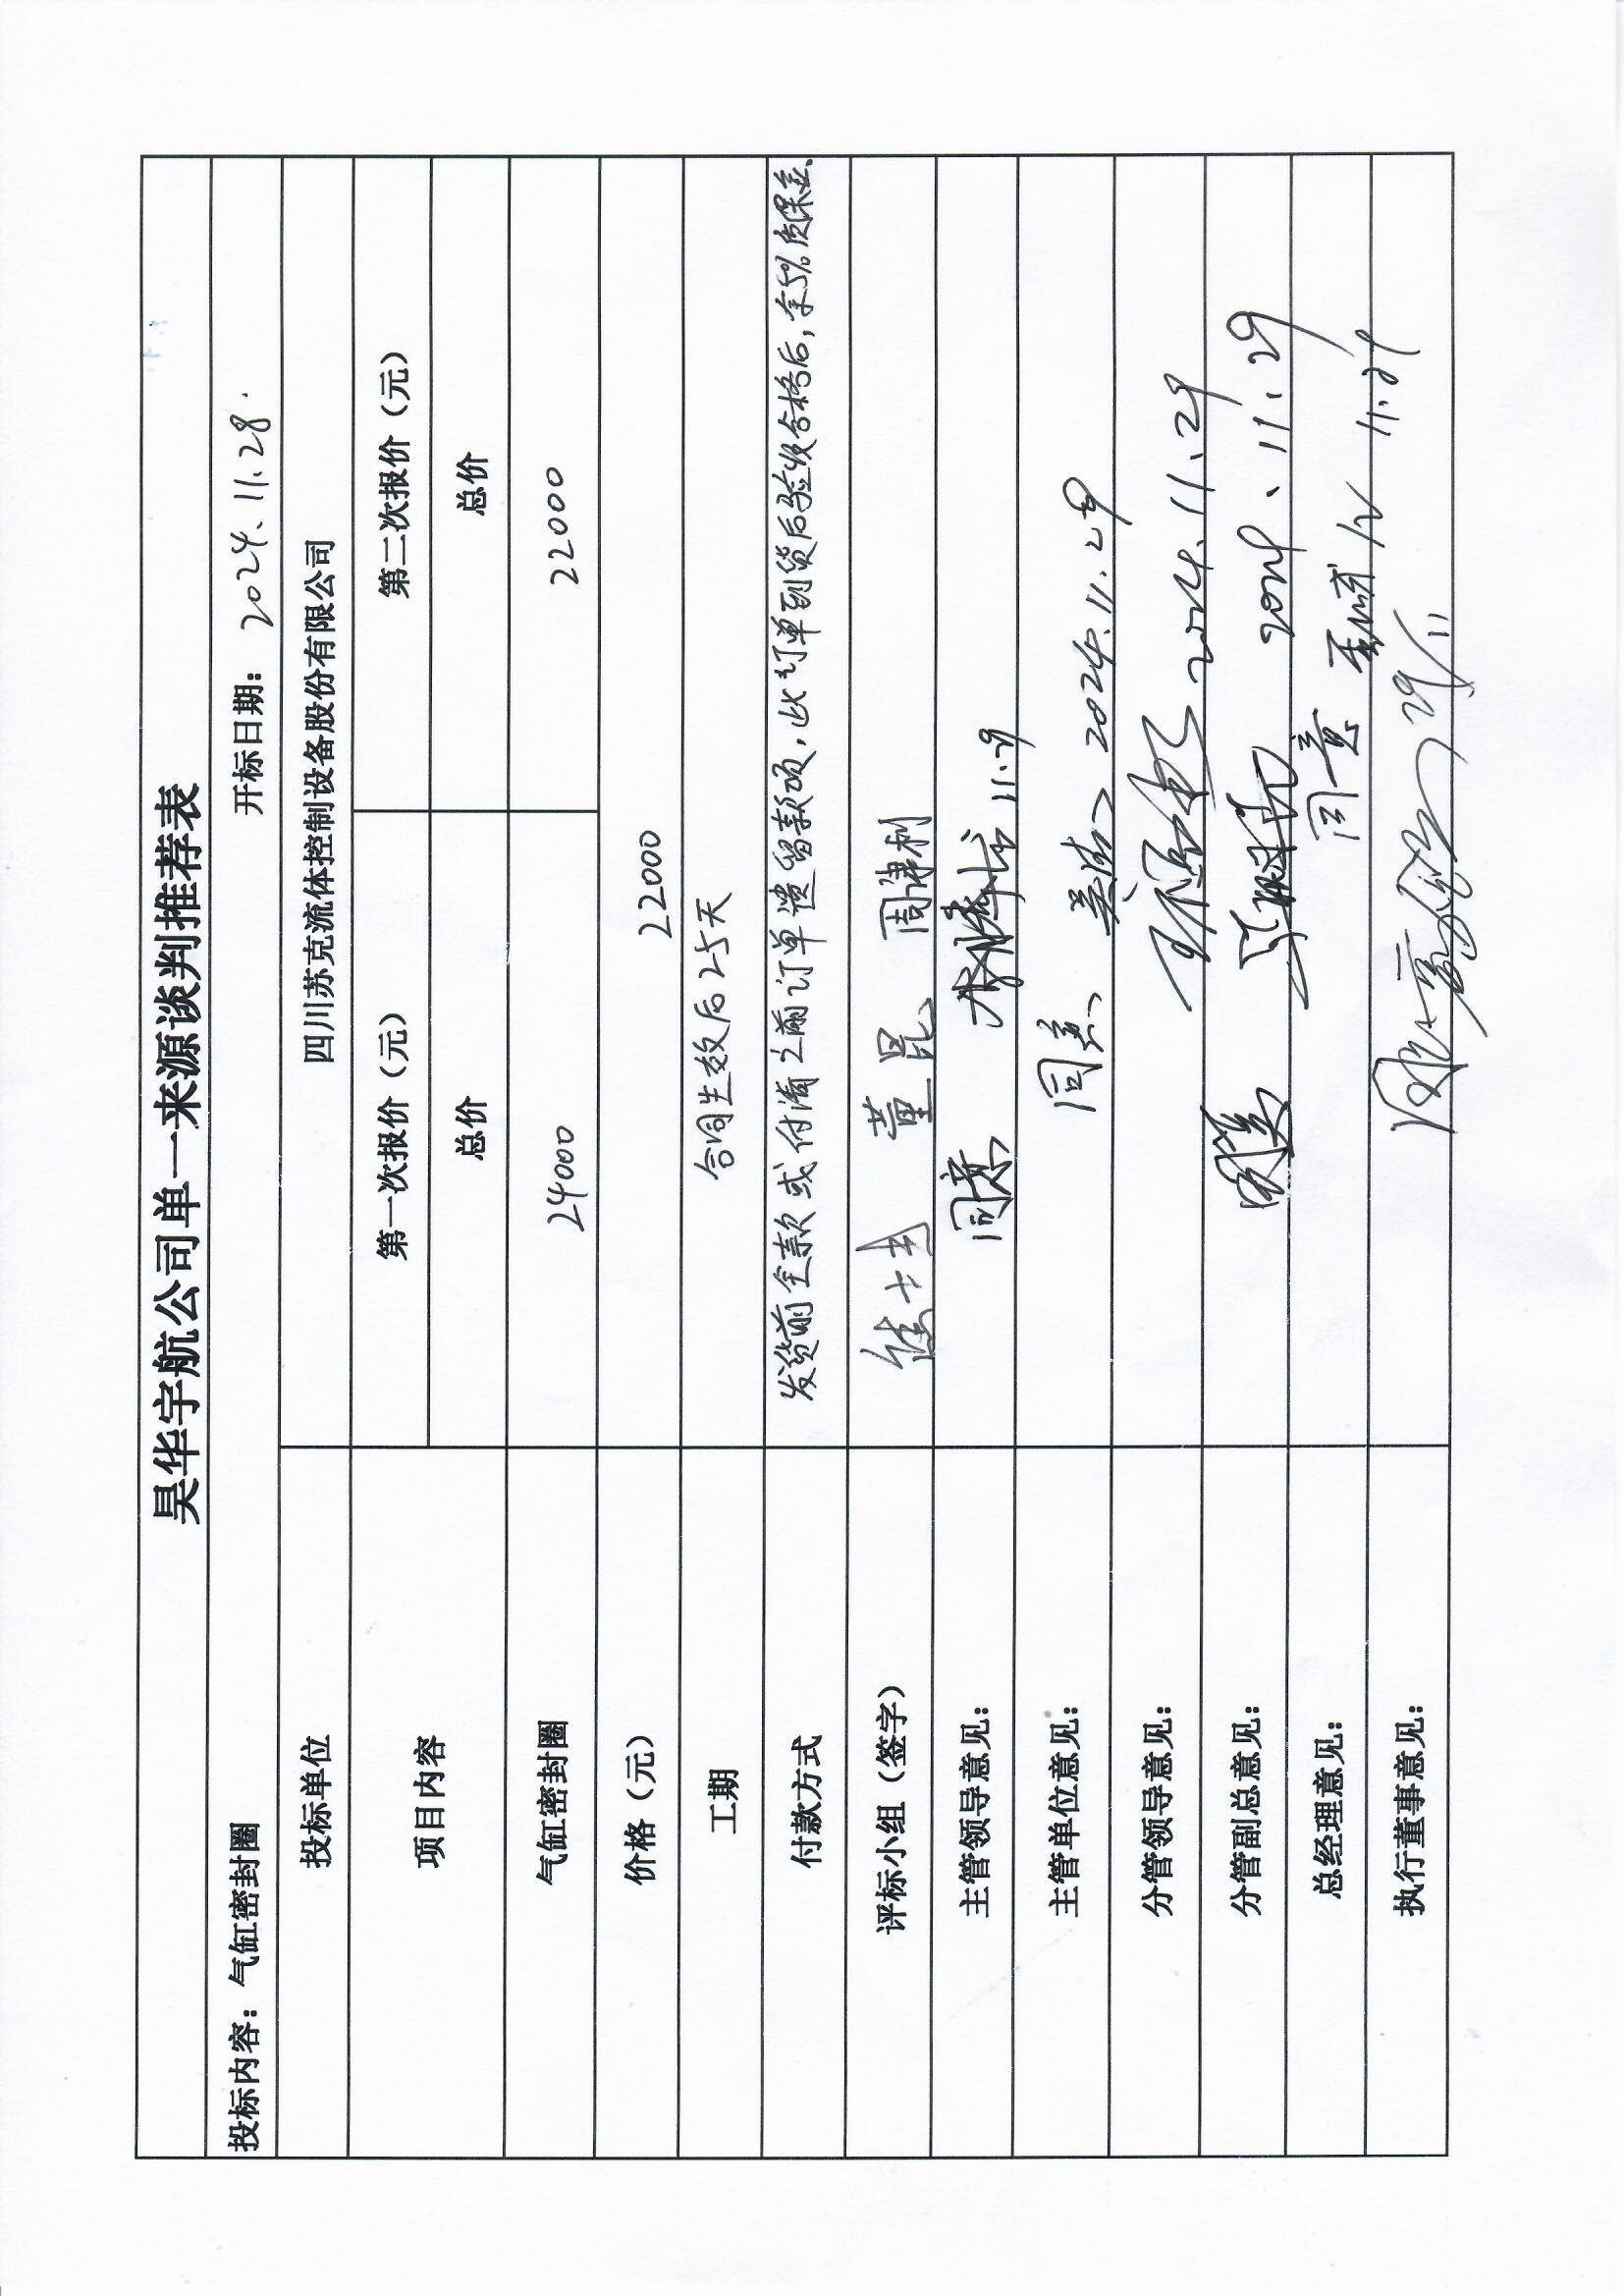 昊华宇航公司单一来源谈判推荐表
投标内容：气缸密封圈 开标日期：2024.11.28.
投标单位 四川苏克流体控制设备股份有限公司
项目内容 第一次报价（元） 第二次报价（元）
总价 总价
气缸密封圈 24000 22000
价格（元） 22000
工期 合同生效后25天
付款方式 发货前全款或付清之前订单遗留款项，此订单到货后验收合格后，余5%质保金。
评标小组（签字） 董昆 周建利
主管领导意见： 同意 11.29
主管单位意见： 同意 2024.11.29
分管领导意见： 2024.11.29
分管副总意见： 2024.11.29
总经理意见： 同意 11.29
执行董事意见： 29/11